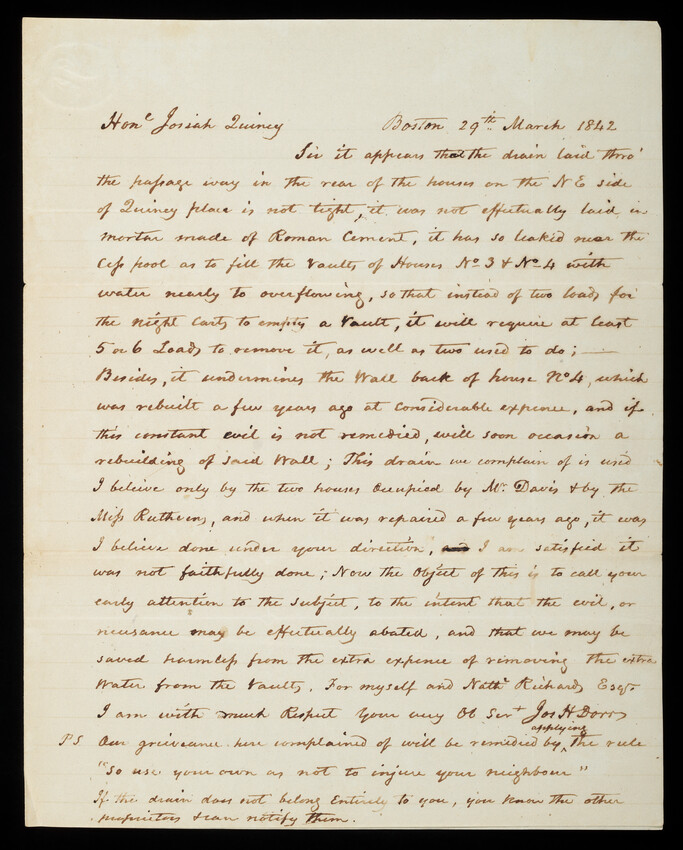 Honᵉ Josiah Quincy Boston 29th. March 1842
Sir it appears that the drain laid thro'
the passage way in the rear of the houses on the N E side
of Quincy place is not tight, it was not effectually laid in
mortar made of Roman Cement, it has so leaked near the
Cesspool as to fill the Vaults of Houses No 3 & No 4 with
water nearly to overflowing, so that instead of two loads for
the night Carts to empty a Vault, it will require at least
5 or 6 Loads to remove it, as well as two used to do; —
Besides, it undermines the Wall back of house No 4, which
was rebuilt a few years ago at Considerable expence, and if
this constant evil is not remedied, will soon occasion a
rebuilding of said Wall; This drain we complain of is used
I beleive only by the two houses Occupied by Mr. Davis & by the
Miss Ruthvens, and when it was repaired a few years ago, it was
I believe done under your direction, and I am satisfied it
was not faithfully done; Now the Object of this is to call your
early attention to the subject, to the intent that the evil, or
neusance may be effectually abated, and that we may be
saved harmless from the extra expence of removing the extra
Water from the Vaults. For myself and Nathl Richards Esqr.
I am with much Respect Your very Ob Servt Jos H Dorr
PS Our greivance here complained of will be remedied by applying the rule
"So use your own as not to injure your neighbour"
If the drain does not belong Entirely to you, you know the other
proprietors & can notify them.